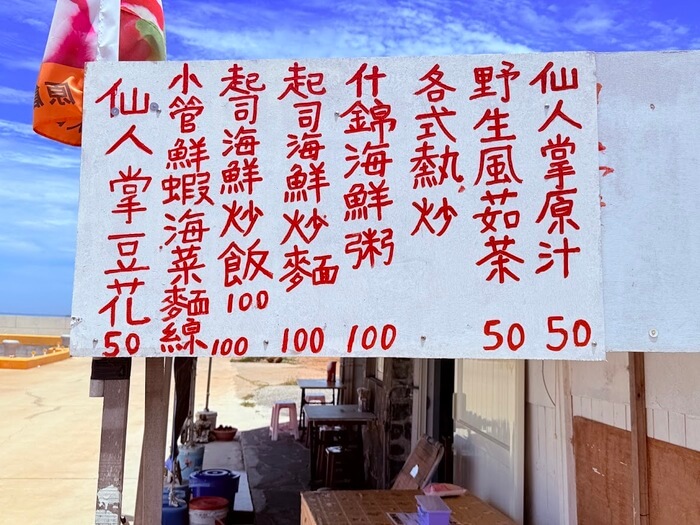 仙人掌原汁 50
野生風茹茶 50
各式熱炒
什錦海鮮粥 100
起司海鮮炒麵 100
起司海鮮炒飯 100
小管鮮蝦海菜麵線 100
仙人掌豆花 50